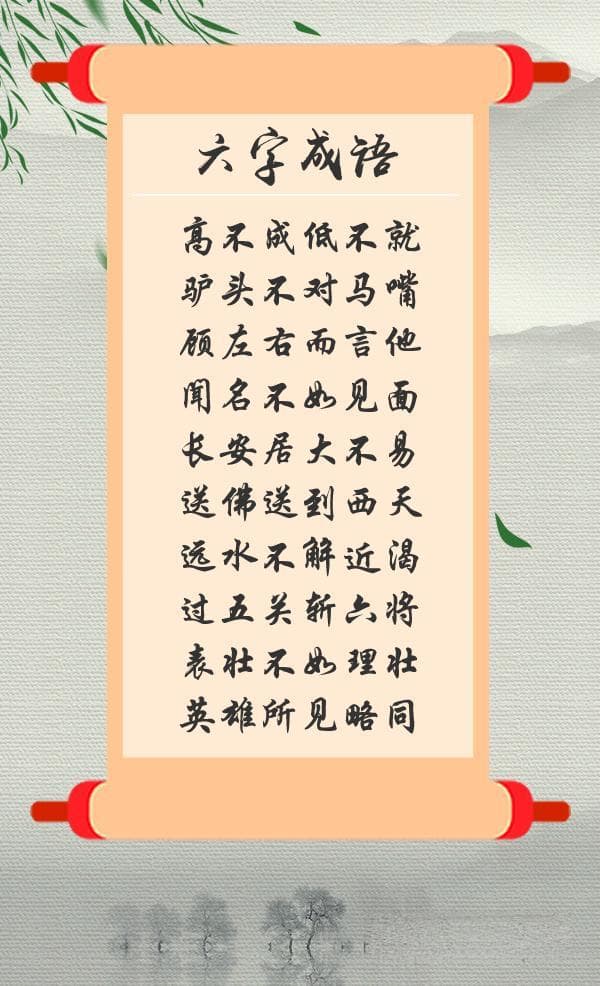 六字成语
高不成低不就
驴头不对马嘴
顾左右而言他
闻名不如见面
长安居大不易
送佛送到西天
远水不解近渴
过五关斩六将
表壮不如理壮
英雄所见略同